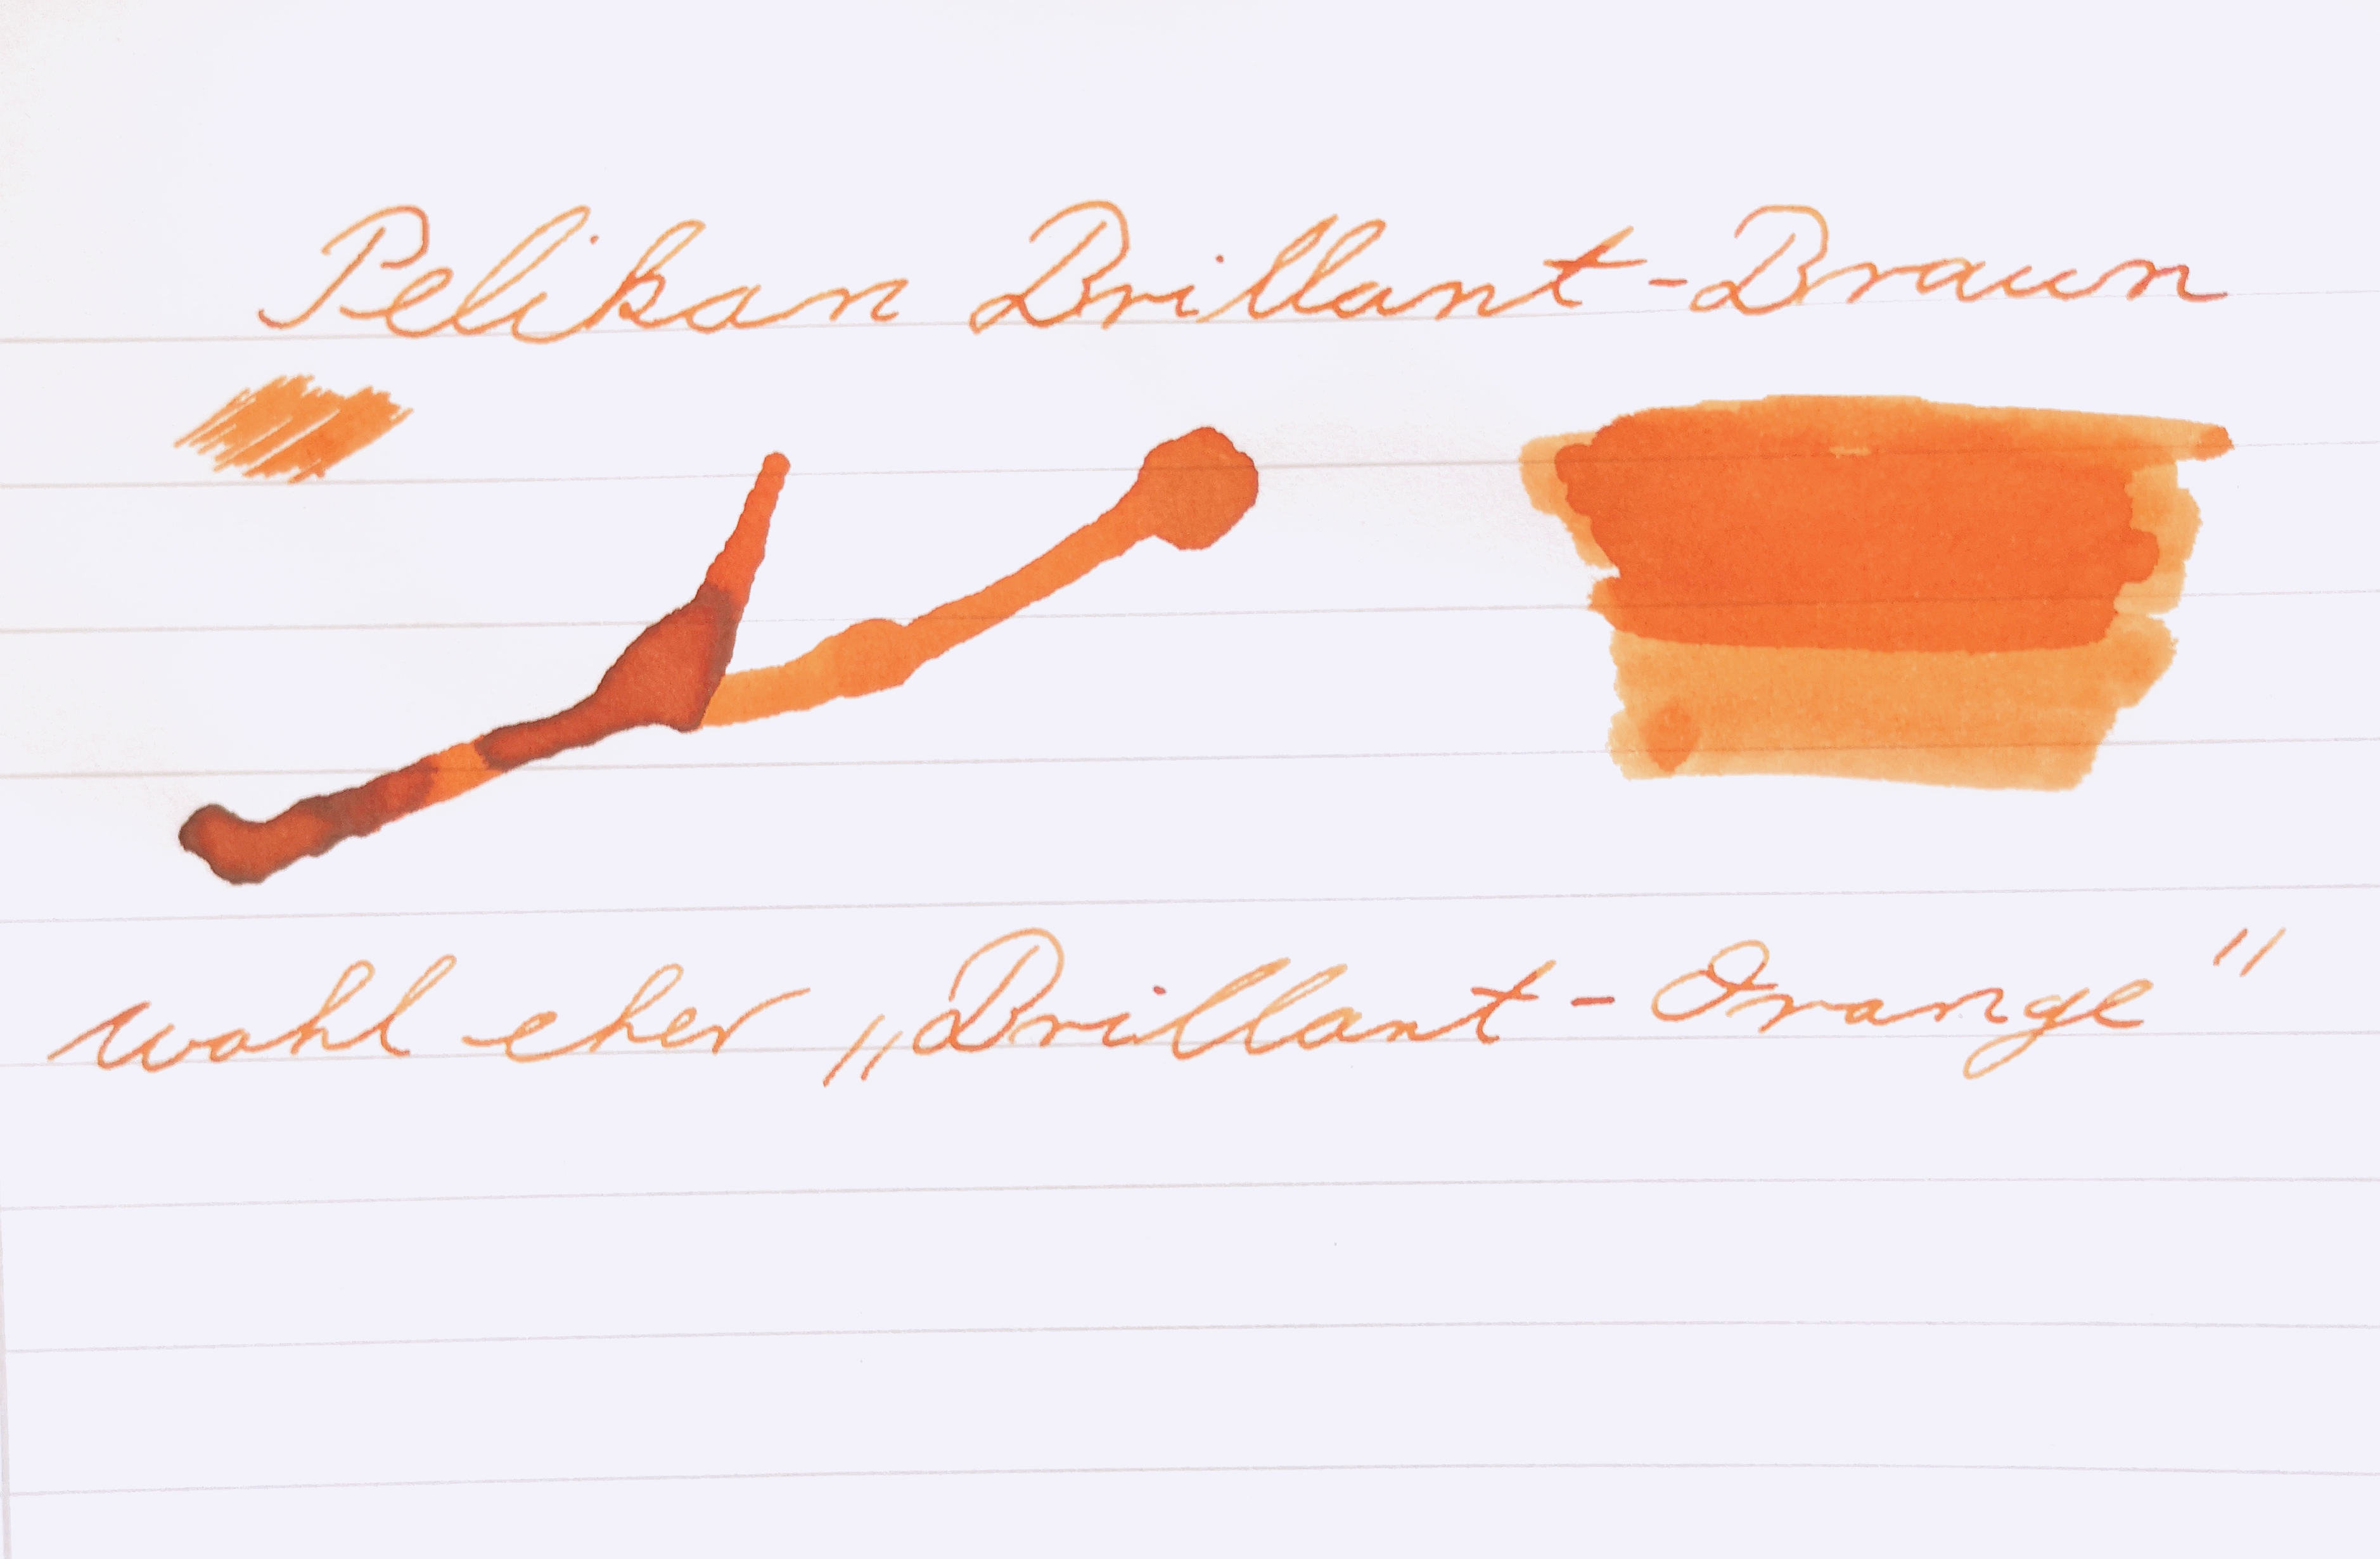 Pelikan Brillant-Braun
wohl eher „Brillant-Orange"